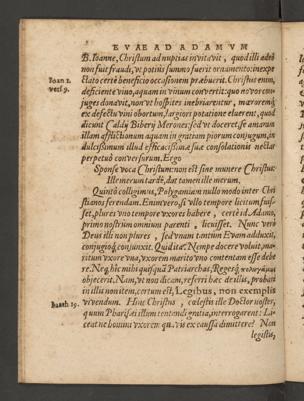 EVAE AD ADAMVM
B. Ioanne, Christum ad nuptias invitavit, quod illi adeò
non fuit fraudi, vt potiùs summo fuerit ornamento: inexpe
Ioan 2.
vers 9.
ctato certè beneficio occasionem præbuerit. Christus enim,
deficiente vino, aquam in vinum convertit: quo novos con-
juges donavit, non vt hospites inebriarentur, mærorem�q́;
ex defectu vini obortum, largiori potatione eluerent, quod
dicunt Caldij Biberij Merones: sed vt doceret, se amaram
illam afflictionum aquam in gratiam piorum conjugum, in
dulcissimum illud efficacissimæ suæ consolationis nectar
perpetuò conversurum. Ergo
Sponse voca Christum: non est sine munere Christus:
Ille merum tardè, dat tamen ille merum.
Quintò colligimus, Polygamiam nullo modo inter Chri
stianos ferendam. Enim vero, si vllo tempore licitum fuis-
set, plures vno tempore vxores habere, certè id Adamo,
primo nostrûm omnium parenti, licuisset. Nunc verò
Deus illi non plures, sed vnam tantùm Evam adduxit,
conjugioq́; conjunxit. Quid ita? Nempe docere voluit, ma-
ritum vxore vna, vxorem marito vno contentam esse debe
re. Neq́; hic mihi quisquã Patriarchas, Reges�q́;
objecerit. Nam, vt non dicam, referri hæc de illis, probari
in illis non item, certum est, Legibus, non exemplis
Matth 19.
vivendum. Hinc Christus, cœlestis ille Doctor noster,
quum Pharisæi illum tentandi gratia, interrogarent: Li-
ceat ne homini vxorem quavis ex caussa dimittere? Non
legistis,